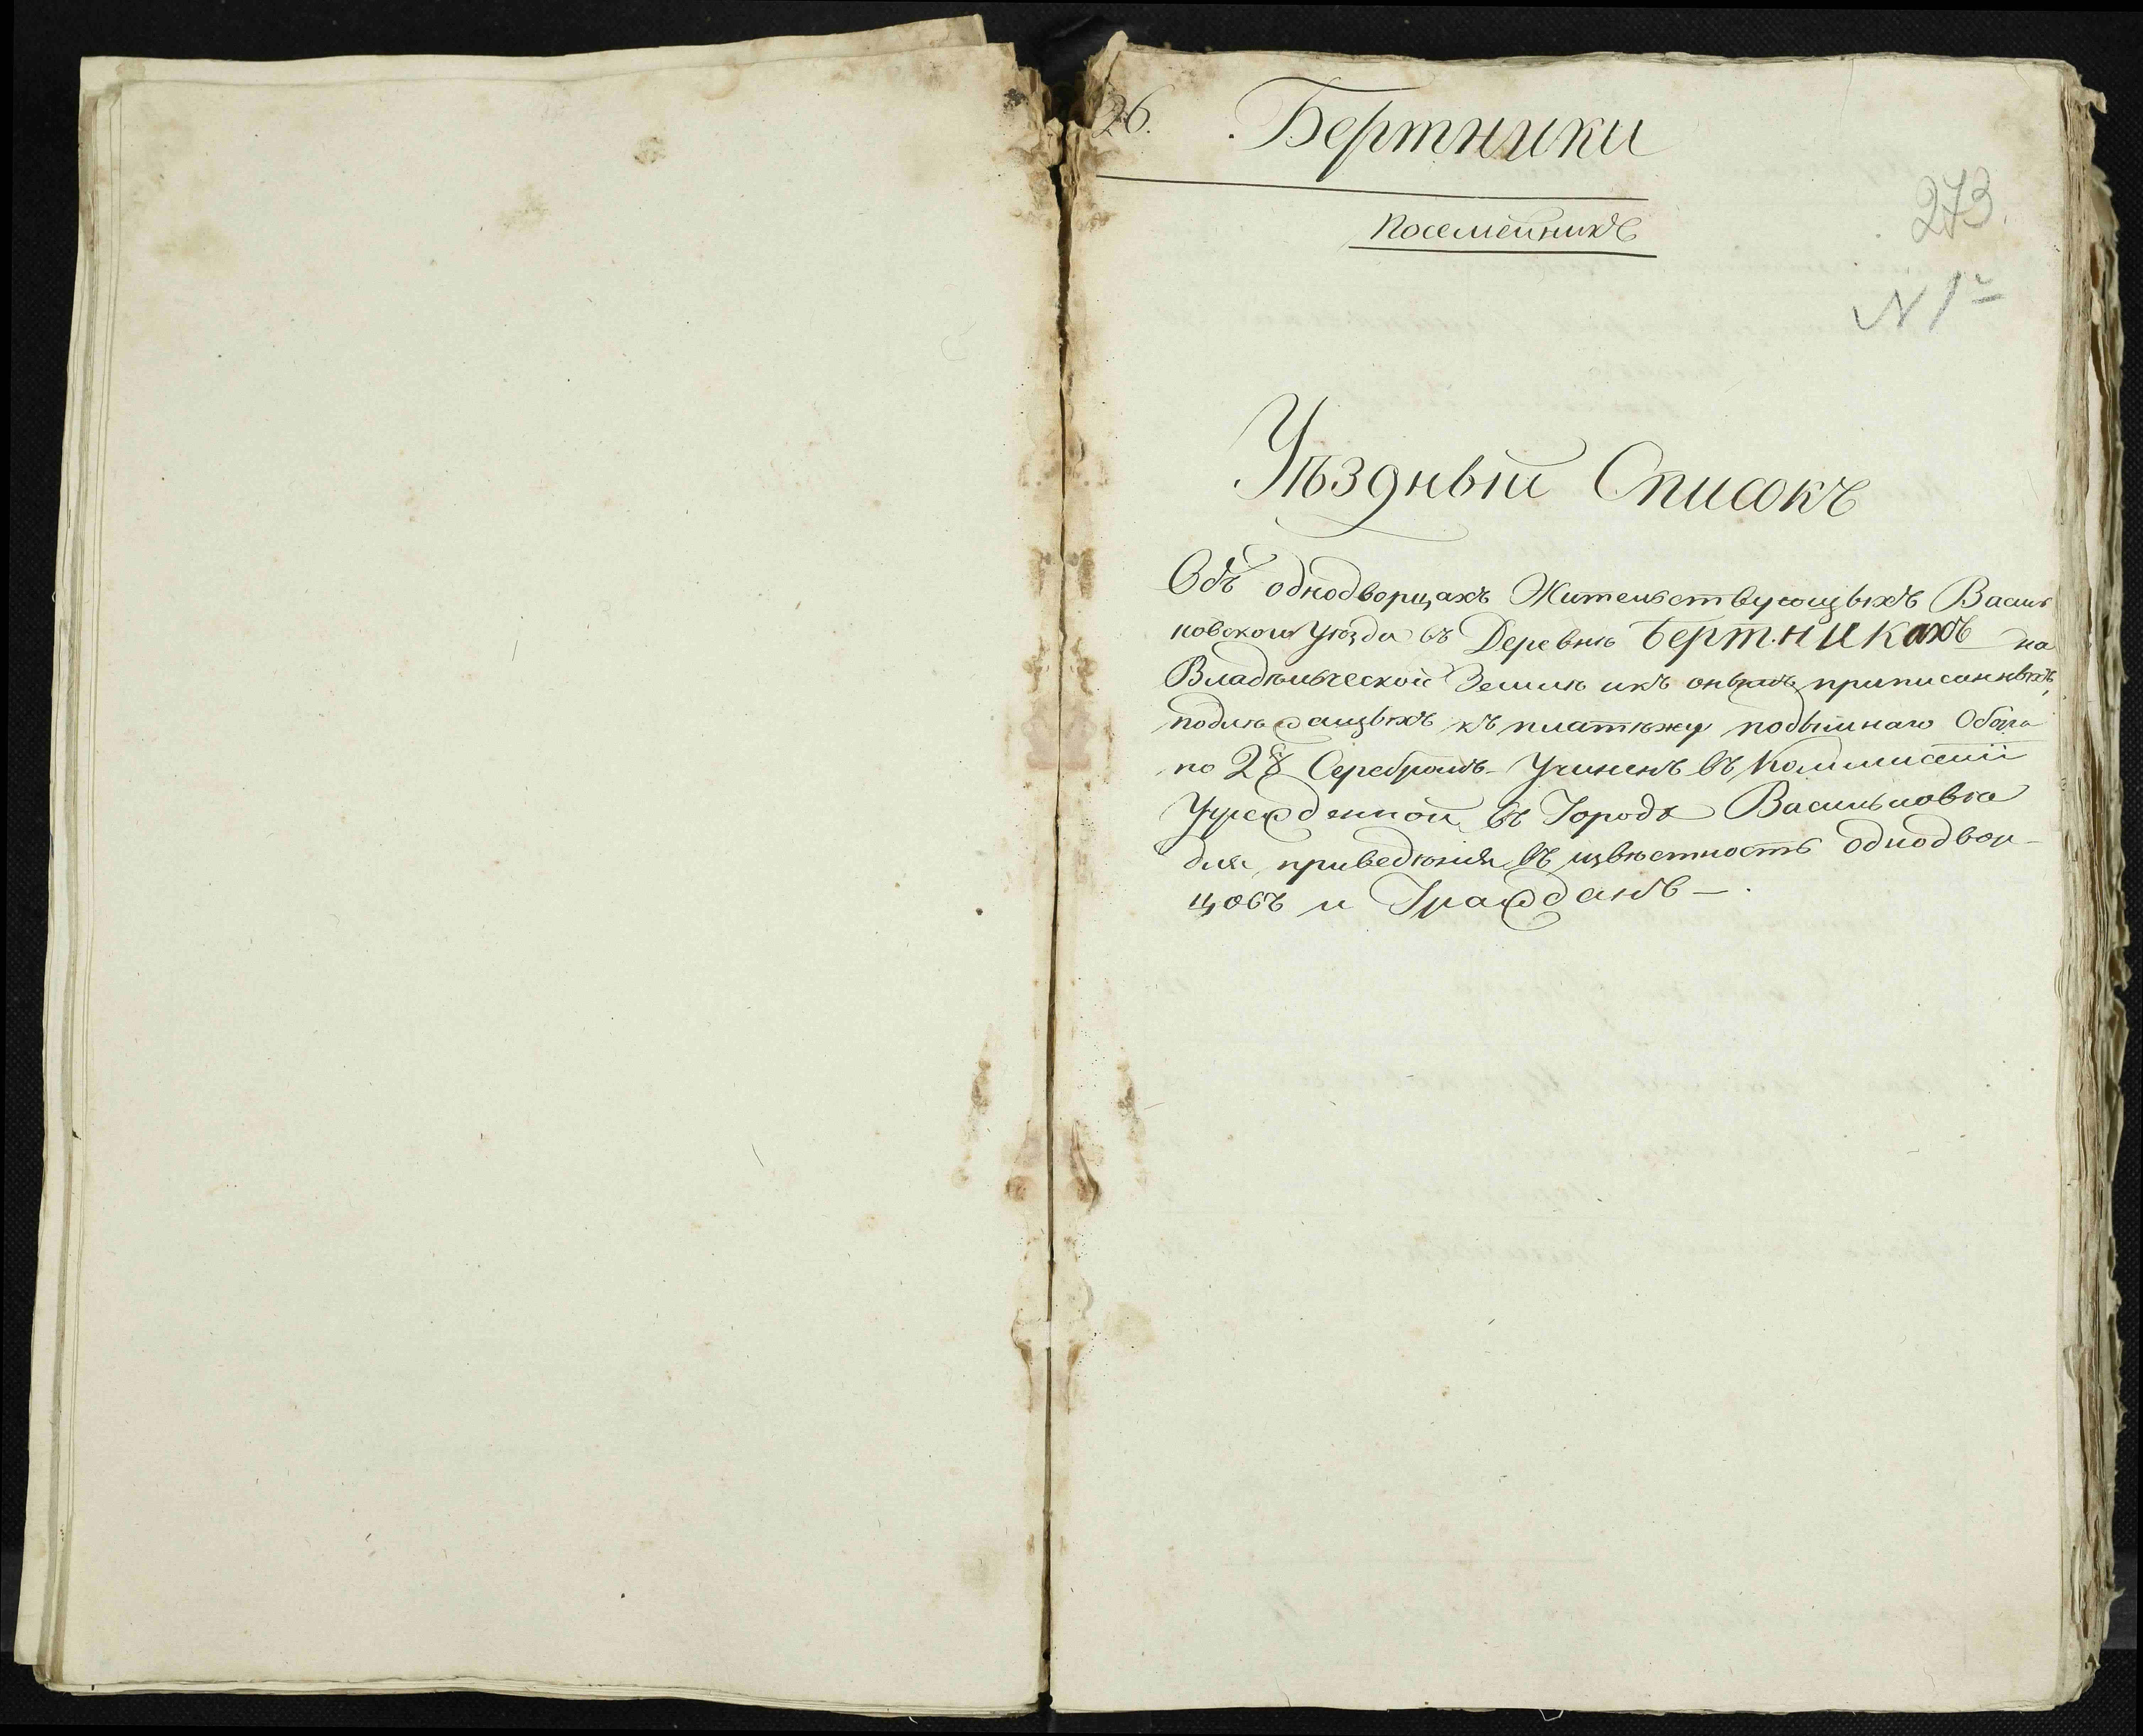 26. Бертники
Посемейникъ
273.
N 1й
Уѣздный Списокъ
Объ однодворцахъ Жительствующыхъ Василь
ковскои Уѣзда въ Деревнѣ Бертникахъ на
Владѣльческой Землѣ икъ онымъ приписанныхъ,
подлѣжащыхъ къ платѣжу подымнаго Сбора
по 2 Серебромъ- Учиненъ въ Коммисѣии
Учрежденной въ Городѣ Васильковѣ
для приведѣния въ извѣстность однодвор-
цовъ и Гражданъ-.